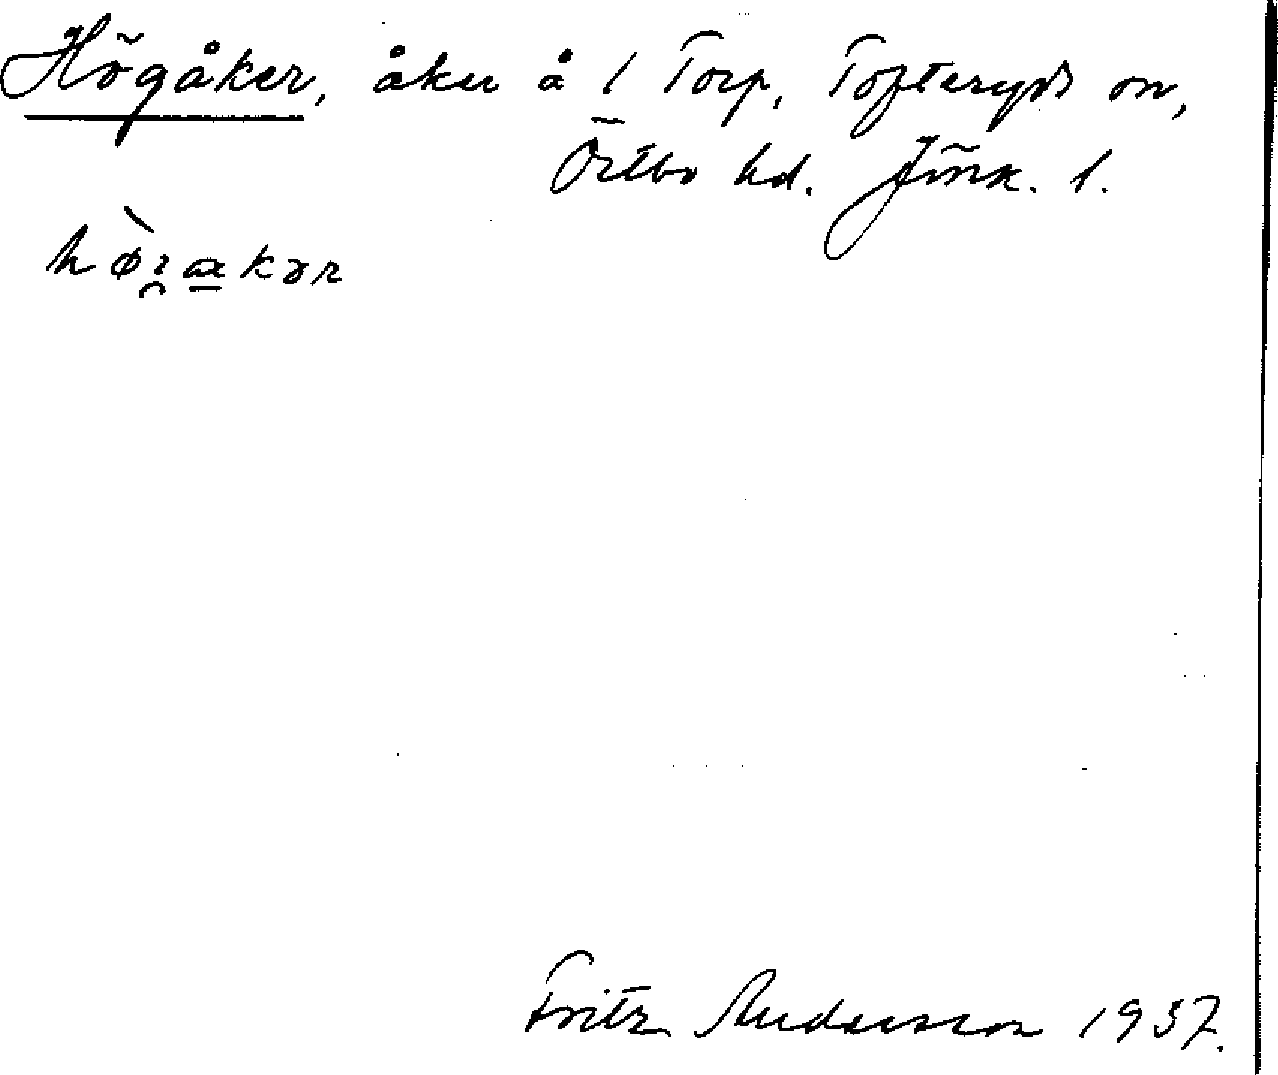 Högåker, åker å 1 Torp, Tofteryds sn,
Östbo hd. Jönk. l.
Fritz Andersson 1937.